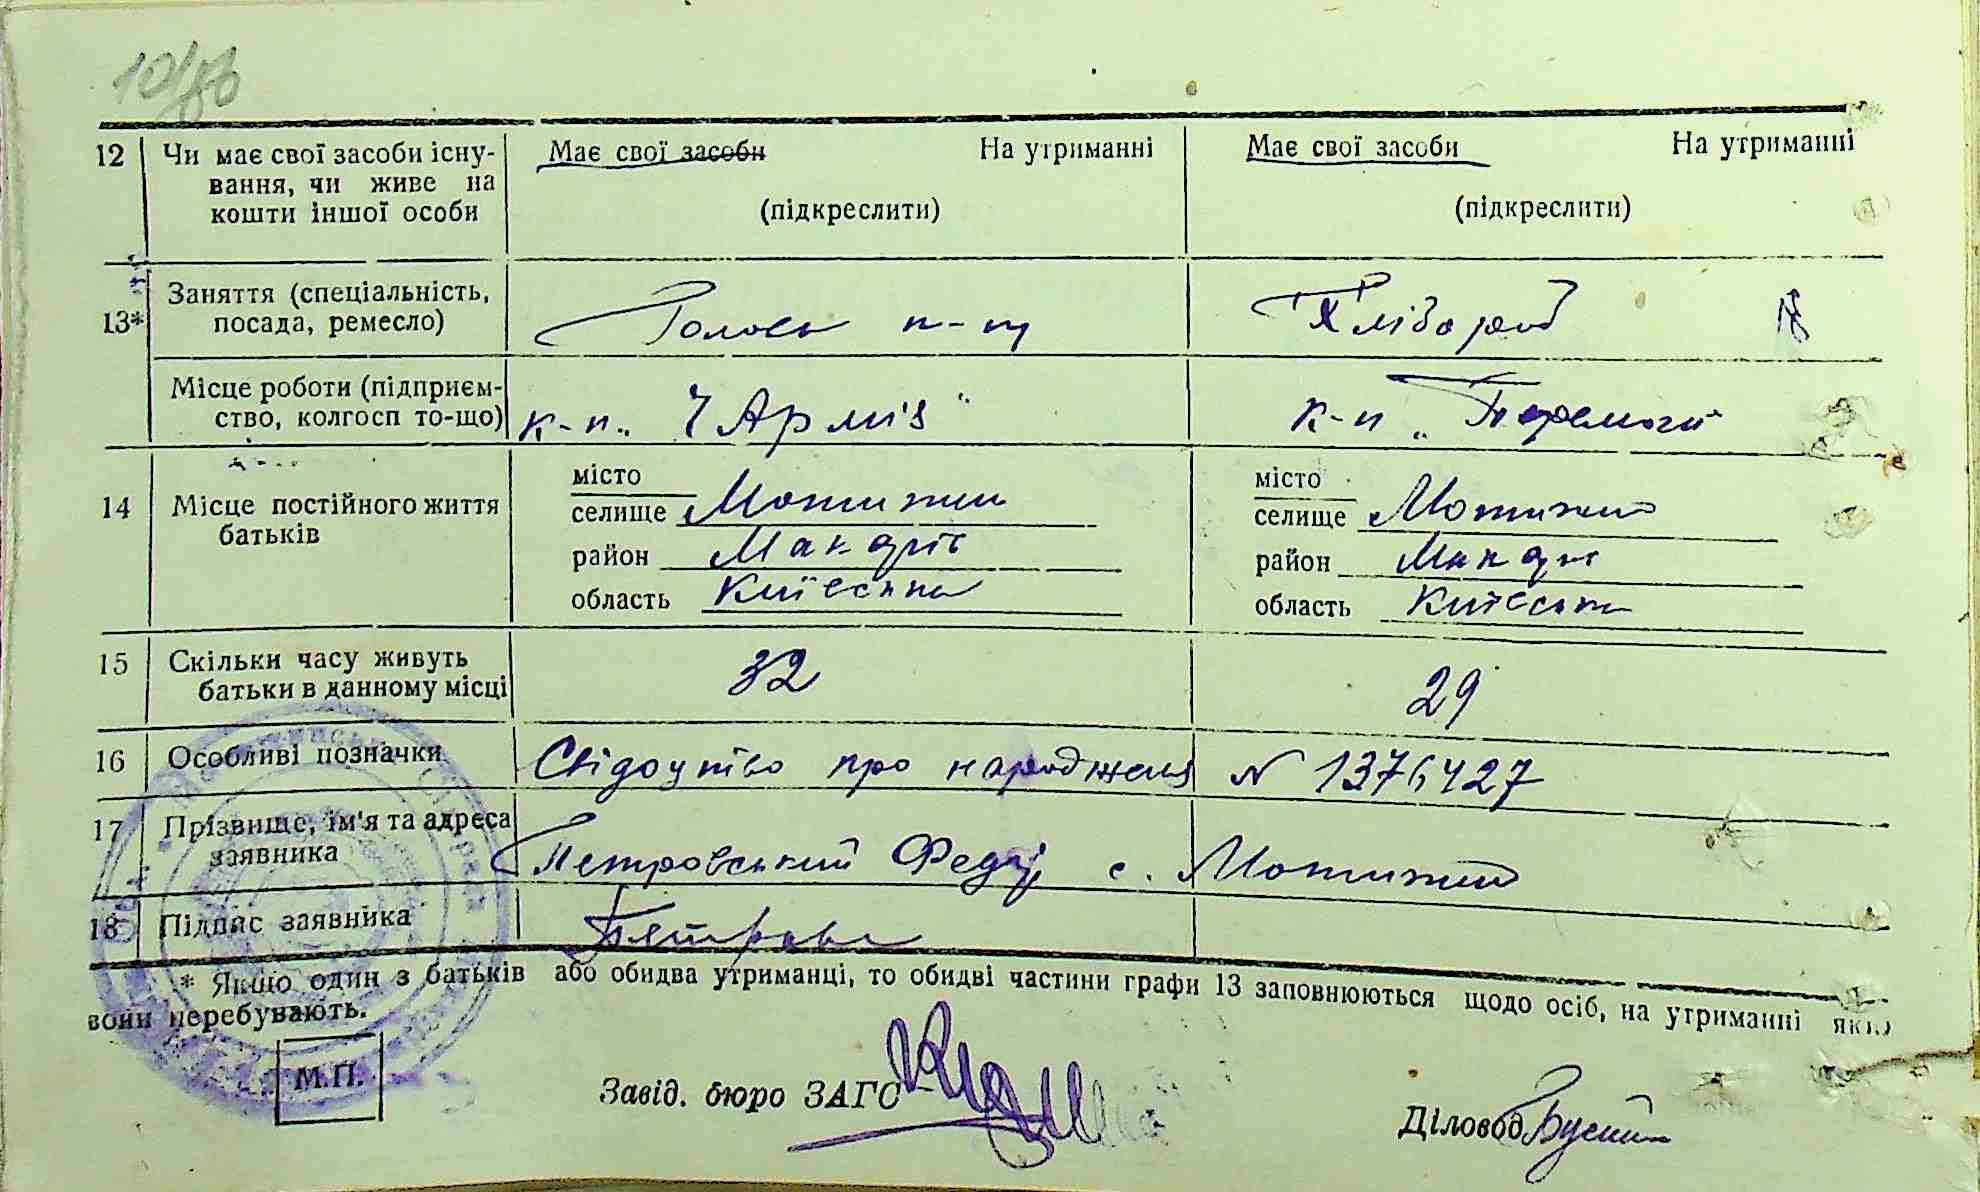 10/56
12 Чи має свої засоби існу- Має свої засоби На утриманні Має свої засоби На утриманні
вання, чи живе на
кошти іншої особи (підкреслити) (підкреслити)
13* Заняття (спеціальність,
посада, ремесло) Голова Хлібороб
Місце роботи (підприєм-
ство, колгосп то-що) к-п „ Армія" к-п „Перемога"
14 Місце постійного життя
батьків
місто місто
селище Мотижин селище Мотижин
район Макарів район Макарів
область Київська область Київська
15 Скільки часу живуть
батьки в данному місці 32 29
16 Особливі позначки Свідоцтво про народження N 1376427
17 Прізвище, ім'я та адреса
заявника Петровський Федір с. Мотижин
18 Підпис заявника
* Якщо один з батьків або обидва утриманці, то обидві частини графи 13 заповнюються щодо осіб, на утриманні яких
вони перебувають.
М.П.
Завід. бюро ЗАГС
Діловод